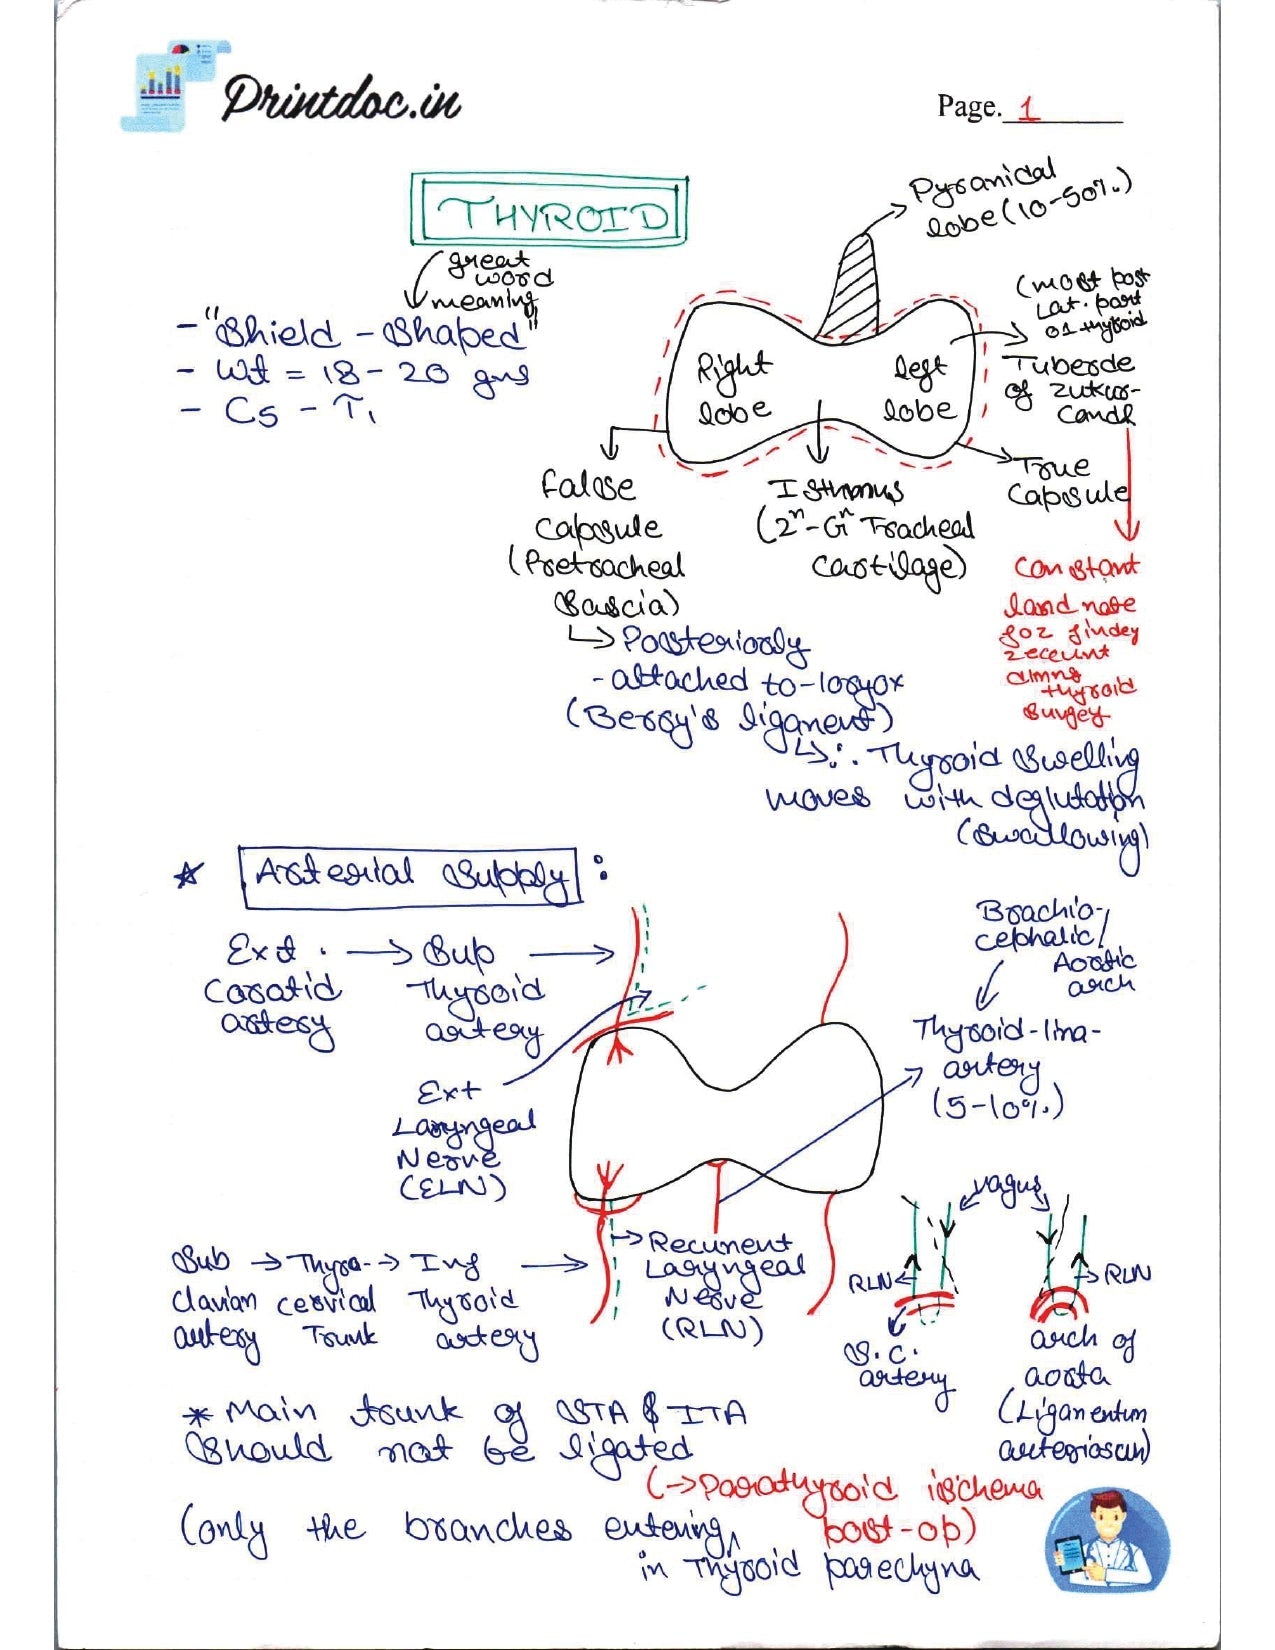 Printdoc.in
Page. 1
THYROID
great
word
meaning
- "Shield - Shaped"
- Wt = 18 - 20 gms
- C5 - T1
Pyramidal
lobe (10-50%)
Right
lobe
left
lobe
(most post
Lat. part
of thyroid
Tubercle
of Zukur-
Candl
True
Capsule
False
Capsule
(Pretracheal
fascia)
Isthmus
(2n - Gn Tracheal
Cartilage)
Constant
land
for
thyroid
Surgey
Posteriorly
- attached to -
(Berry's ligament)
∴ Thyroid Swelling
moves with deglutation
(Swallowing)
* Arterial Supply :
Ext. → Sup →
Carotid Thyroid
artery artery
Ext
Laryngeal
Nerve
(ELN)
Brachio-
cephalic/
Aortic
arch
Thyroid-Ima-
artery
(5-10%)
Sub → Thyro- → Inf →
Clavian cervical Thyroid
artery Trunk artery
Recurrent
Laryngeal
Nerve
(RLN)
vagus
RLN
S.C.
artery
RLN
arch of
aorta
(Ligamentum
arteriosum)
* Main trunk of STA & ITA
Should not be ligated
(→ Parathyroid ischema
post-op)
(only the branches entering
in Thyroid parechyna